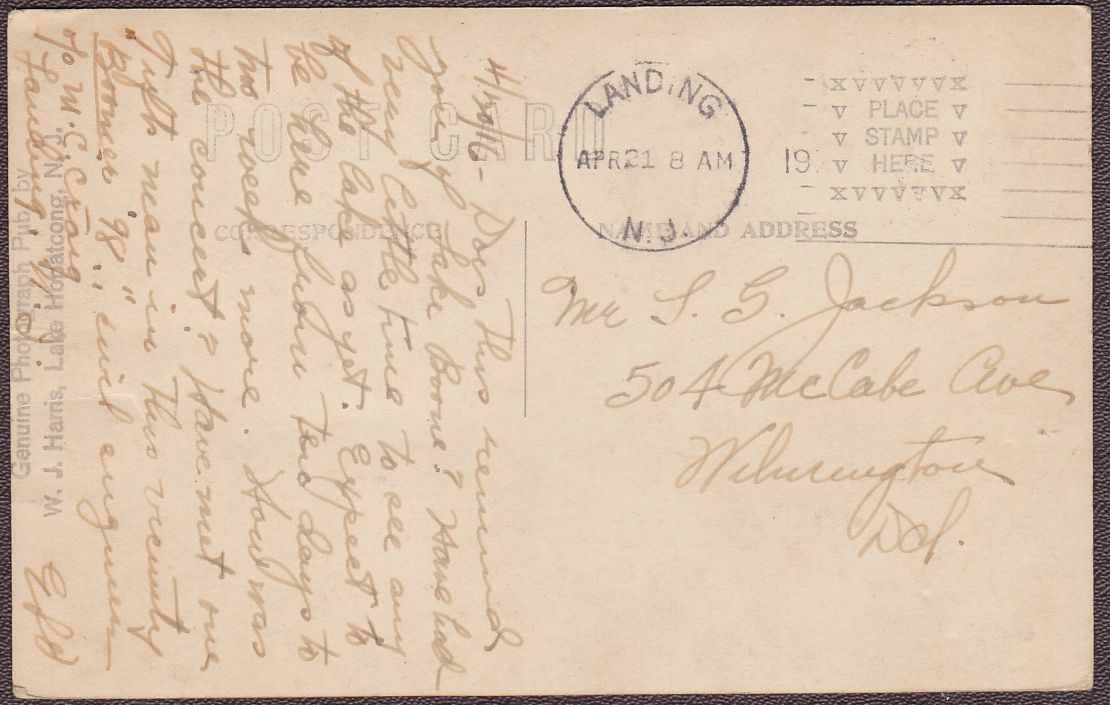 POST CARD
CORRESPONDENCE
NAME AND ADDRESS
LANDING
APR 21 8 AM
N.J.
19
PLACE
STAMP
HERE
Mr S. G. Jackson
504 McCabe Ave
Wilmington
Del.
4/20/16 - Does this remind
you of Lake Boone? Have had
very little time to see any
of the lake as yet. Expect to
be here from ten days to
two weeks more. How was
the concert? Have met one
Tufts man in this vicinity
Boomer '98", civil engineer
c/o W. C. Craig
Landing N.J.
Genuine Photograph Pub. by
W. J. Harris, Lake Hopatcong, N. J.